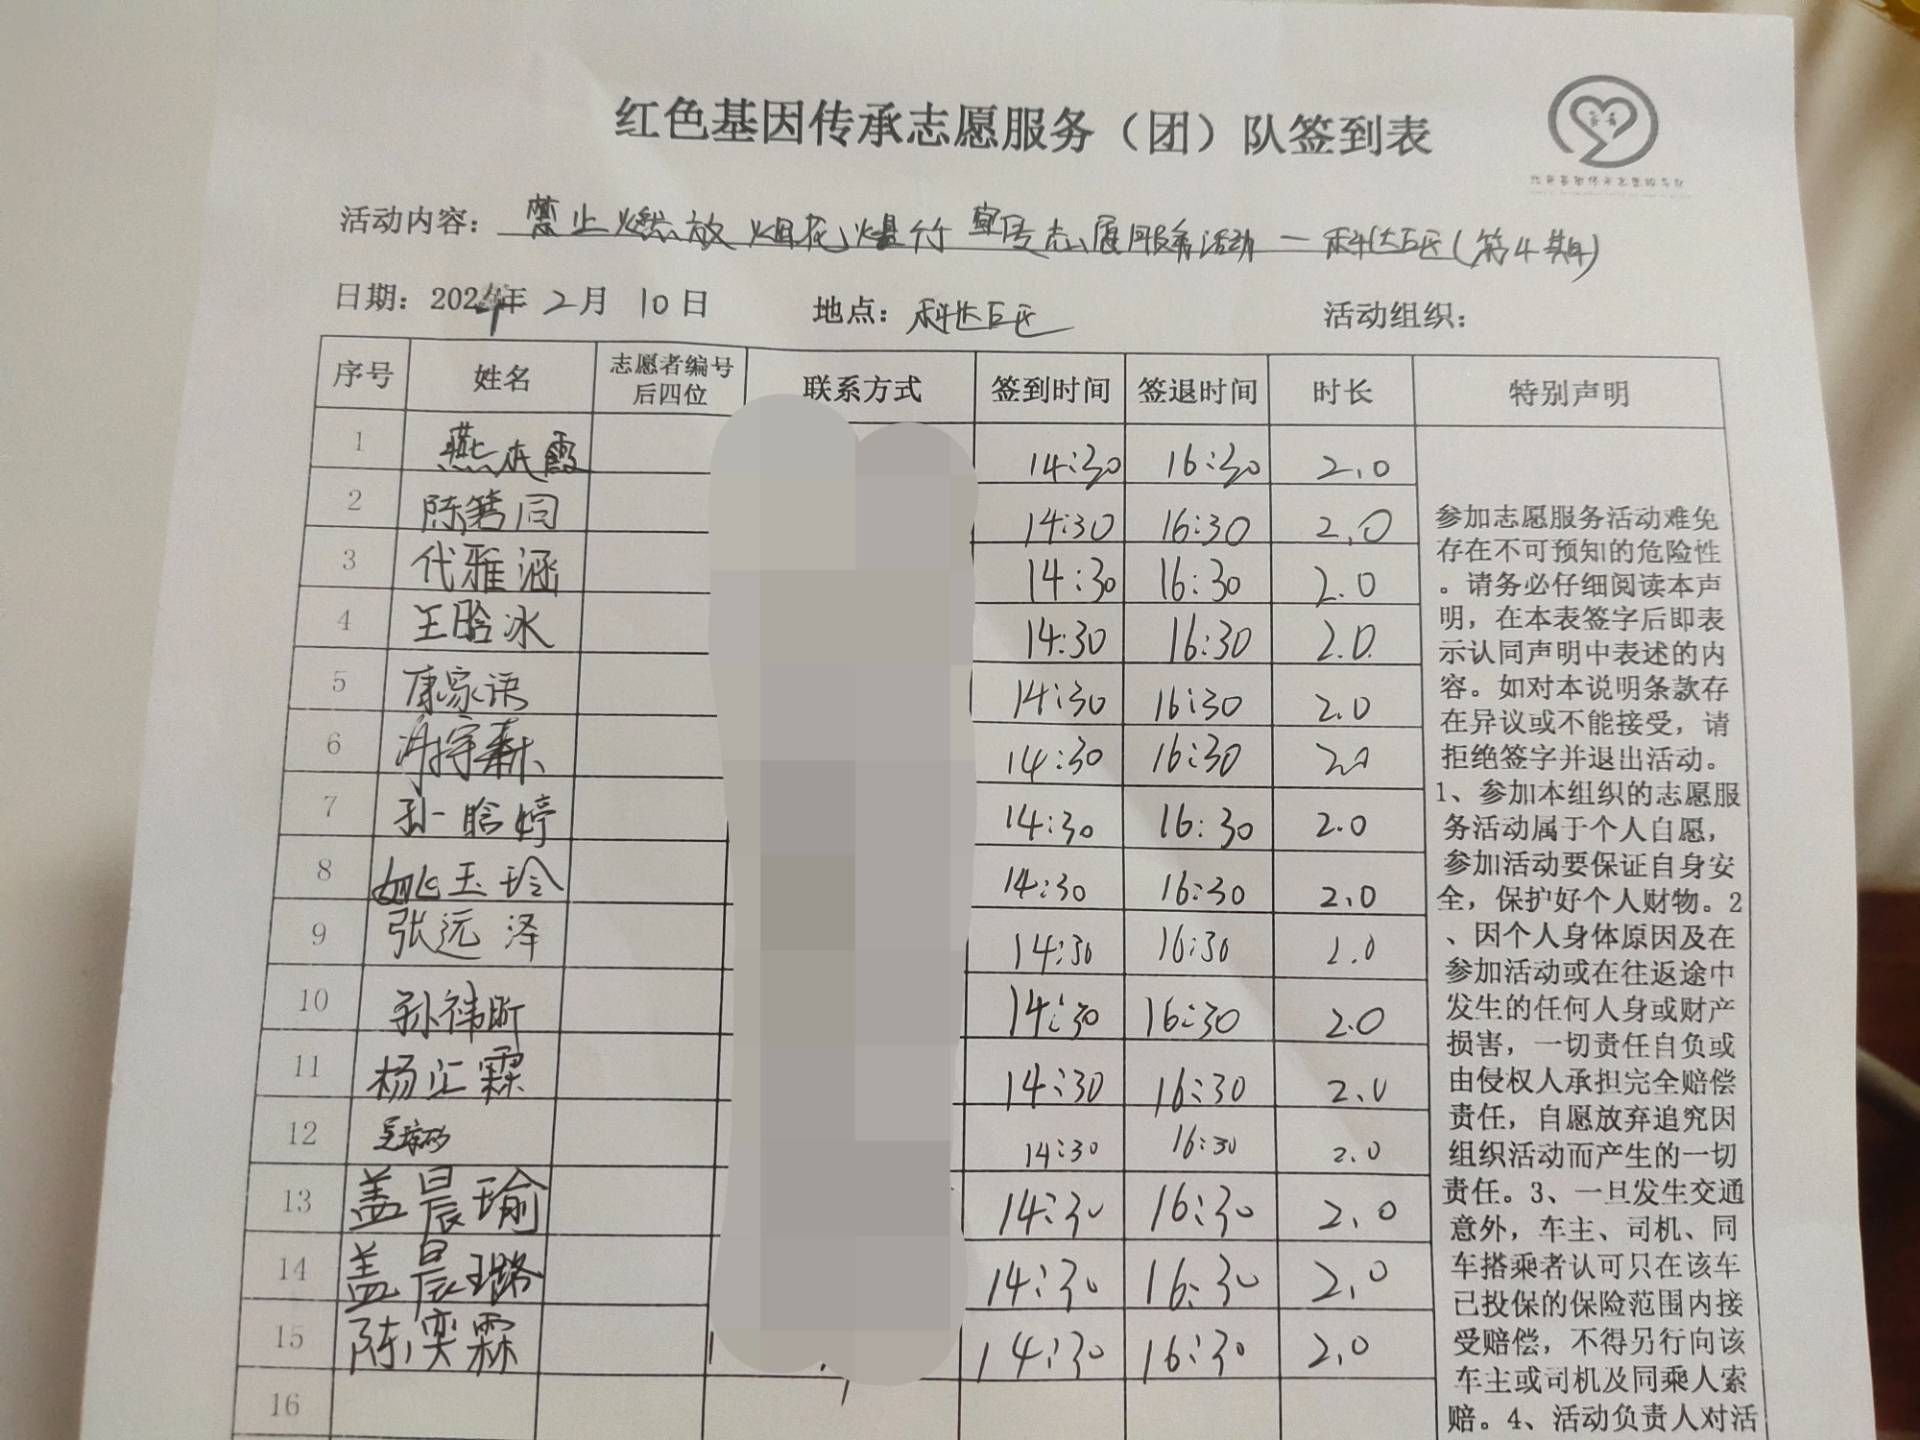 红色基因传承志愿服务（团）队签到表
活动内容：禁止燃放烟花爆竹宣传志愿服务活动一科达西区(第4期)
日期：2024年 2月 10日 地点：科达西区 活动组织：
序号 姓名 志愿者编号后四位 联系方式 签到时间 签退时间 时长 特别声明
1 燕霞 14:30 16:30 2.0
2 陈箐同 14:30 16:30 2.0
3 代雅涵 14:30 16:30 2.0
4 王晗冰 14:30 16:30 2.0
5 康家语 14:30 16:30 2.0
6 14:30 16:30 2.0
7 孙一晗婷 14:30 16:30 2.0
8 姚玉玲 14:30 16:30 2.0
9 张远泽 14:30 16:30 2.0
10 孙祎昕 14:30 16:30 2.0
11 杨汇霖 14:30 16:30 2.0
12 14:30 16:30 2.0
13 盖晨瑜 14:30 16:30 2.0
14 盖晨璐 14:30 16:30 2.0
15 陈奕霖 14:30 16:30 2.0
16
参加志愿服务活动难免
存在不可预知的危险性
。请务必仔细阅读本声
明，在本表签字后即表
示认同声明中表述的内
容。如对本说明条款存
在异议或不能接受，请
拒绝签字并退出活动。
1、参加本组织的志愿服
务活动属于个人自愿，
参加活动要保证自身安
全，保护好个人财物。2
、因个人身体原因及在
参加活动或在往返途中
发生的任何人身或财产
损害，一切责任自负或
由侵权人承担完全赔偿
责任，自愿放弃追究因
组织活动而产生的一切
责任。3、一旦发生交通
意外，车主、司机、同
车搭乘者认可只在该车
已投保的保险范围内接
受赔偿，不得另行向该
车主或司机及同乘人索
赔。4、活动负责人对活